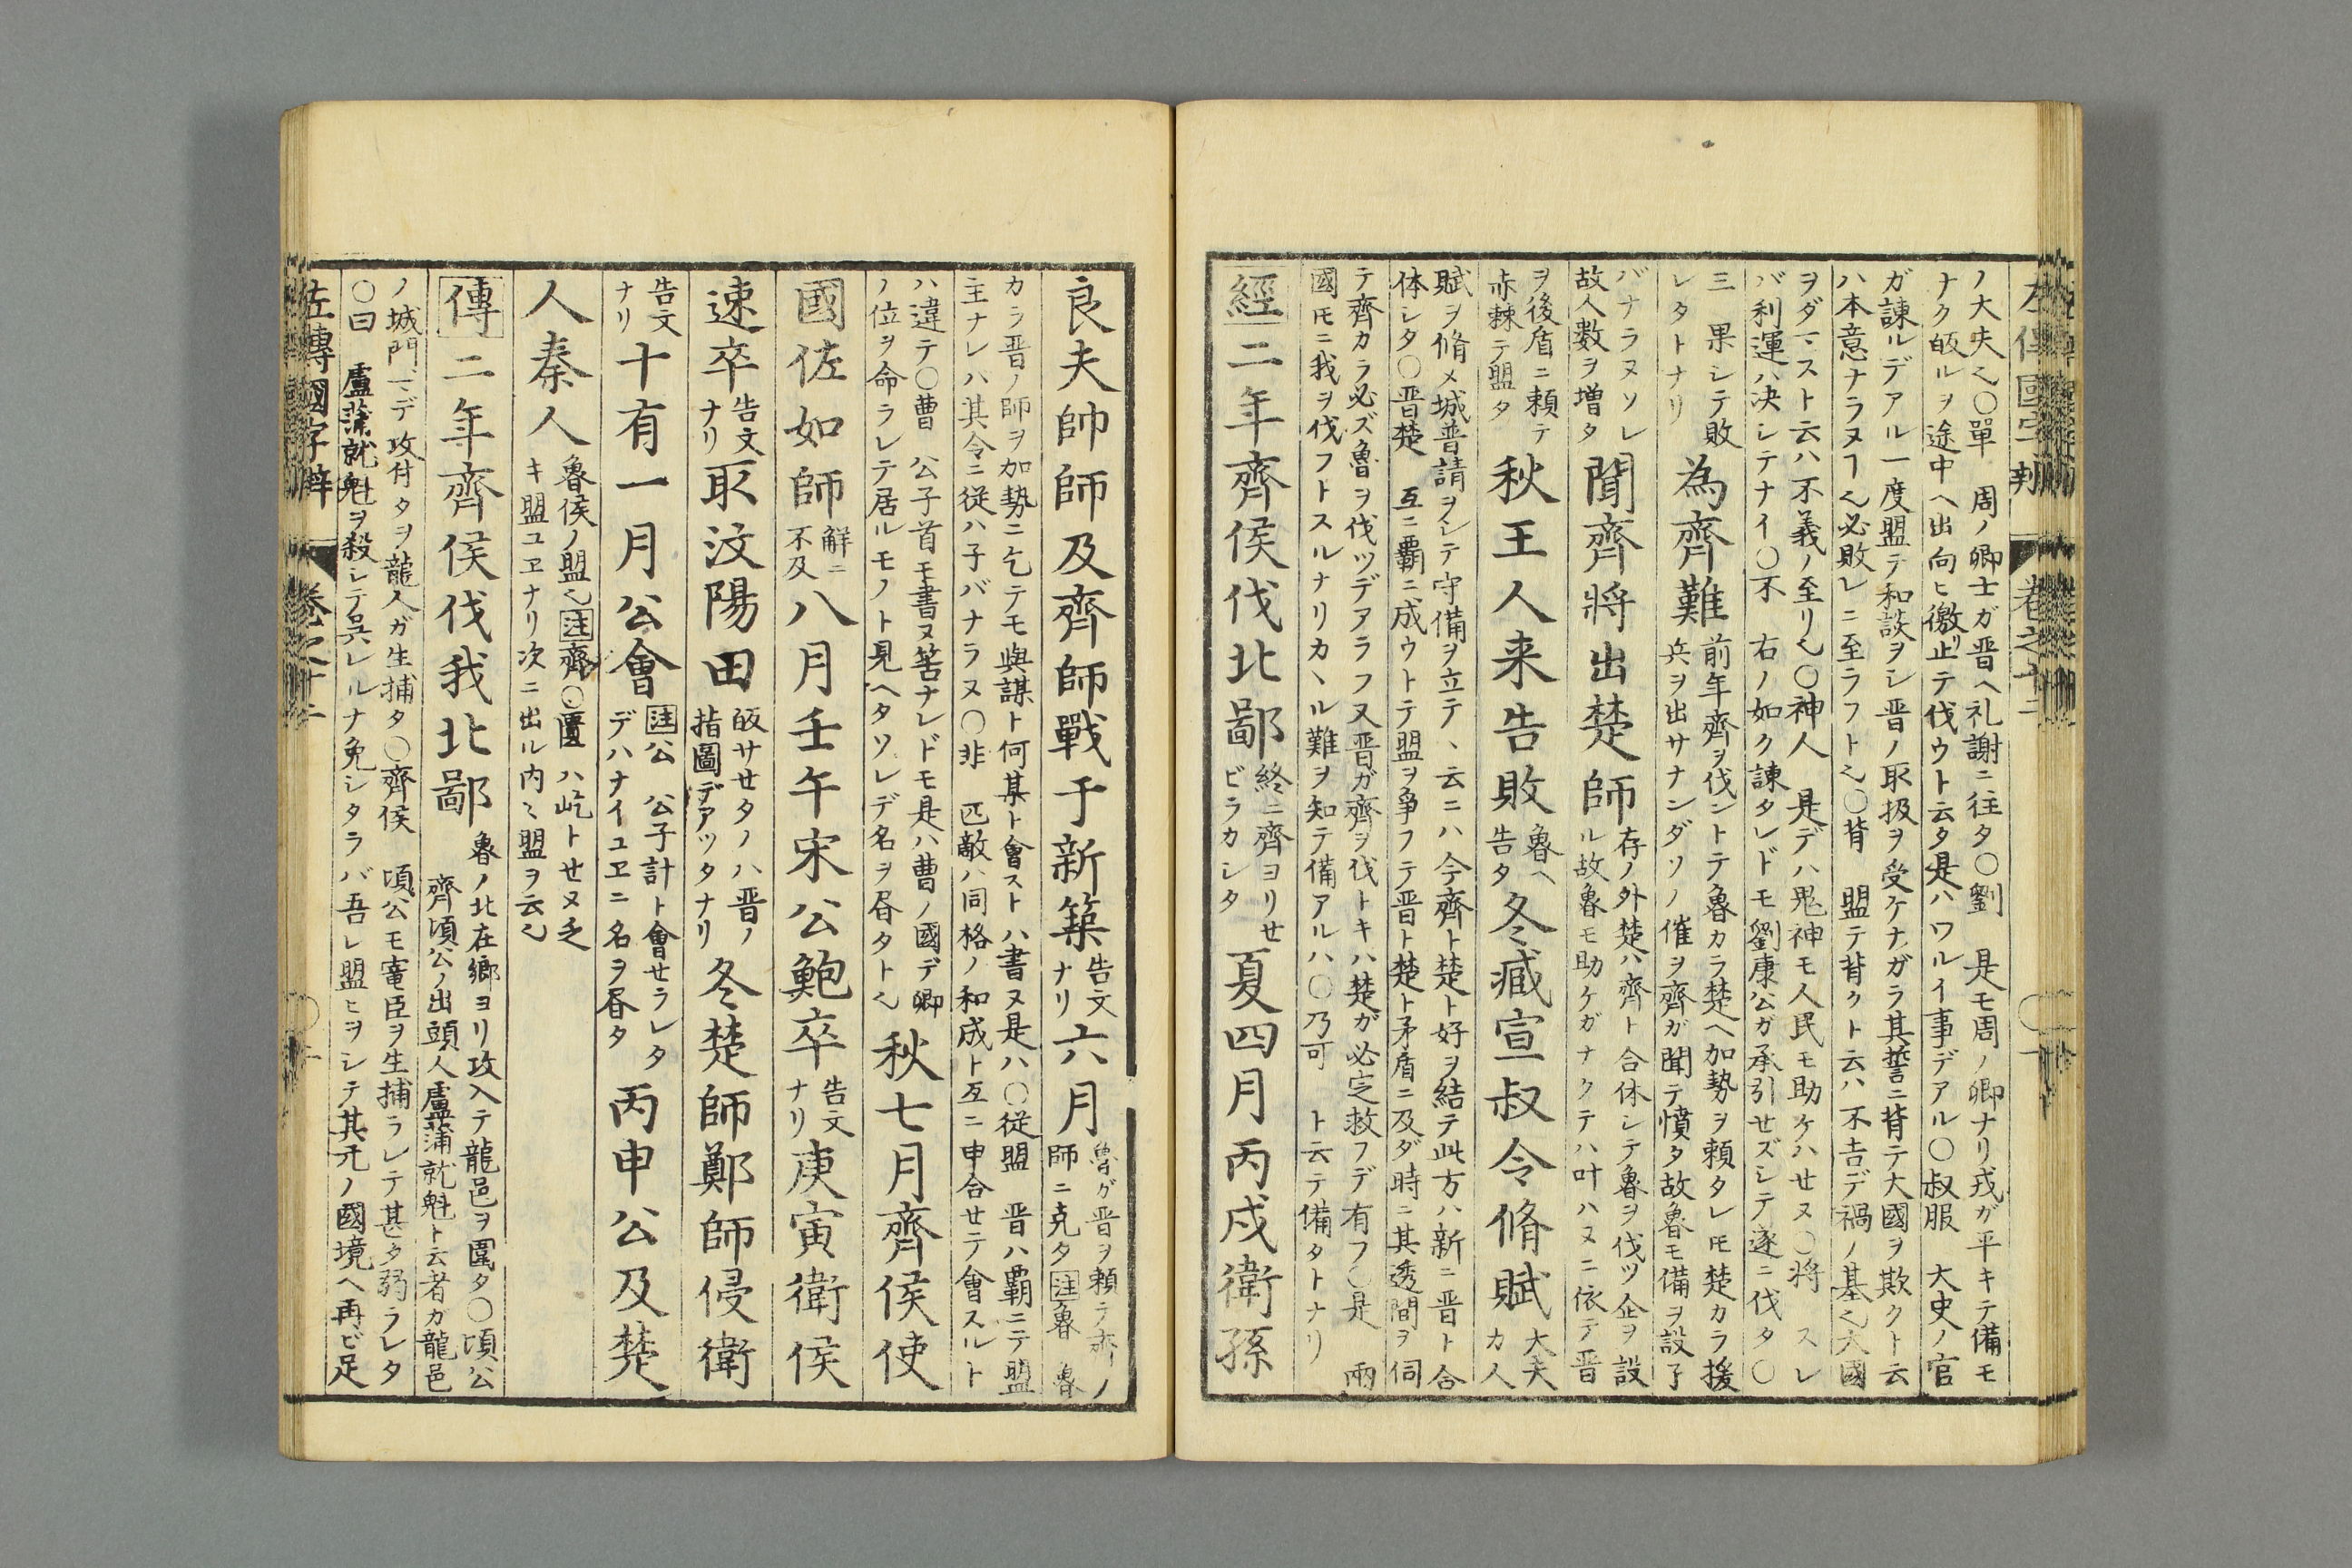 左傳國字辨 卷之十二
ノ大夫也〇單 周ノ卿士ガ晋ヘ礼謝ニ往タ〇劉 是モ周ノ卿ナリ戎ガ平キテ備モ
ナク皈ルヲ途中ヘ出向ヒ徼リ止テ伐ウト云タ是ハワルイ事デアル〇叔服 大史ノ官
ガ諫ルデアル一度盟テ和談ヲシ晋ノ取扱ヲ受ケナガラ其誓ニ背テ大國ヲ欺クト云
ハ本意ナラヌヿ也必敗レニ至ラフト也〇背 盟テ背クト云ハ不吉デ禍ノ基也大國
ヲダマスト云ハ不義ノ至リ也〇神人 是デハ鬼神モ人民モ助ケハセヌ〇将 スレ
バ利運ハ决シテナイ〇不 右ノ如ク諫タレドモ劉康公ガ承引せズシテ逐ニ伐タ〇
三 果シテ敗
レタトナリ
為齊難
前年齊ヲ伐ントテ魯カラ楚ヘ加勢ヲ頼タレ𪜈楚カラ援
兵ヲ出サナンダソノ催ヲ齊ガ聞テ憤タ故魯モ備ヲ設子
バナラヌソレ
故人数ヲ増タ
聞齊將出楚師
存ノ外楚ハ齊ト合体シテ魯ヲ伐ツ企ヲ設
ル故魯モ助ケガナクテハ叶ハヌニ依テ晋
ヲ後盾ニ頼テ
赤棘テ盟タ
秋王人来告敗
魯ヘ
告タ
冬臧宣叔令脩賦
大夫
カ人
賦ヲ脩メ城普請ヲシテ守備ヲ立テヽ云ニハ今齊ト楚ト好ヲ結テ此方ハ新ニ晋ト合
体シタ〇晋楚 互ニ覇ニ成ウトテ盟ヲ爭フテ晋ト楚ト矛盾ニ及ダ時ニ其透間ヲ伺
テ齊カラ必ズ魯ヲ伐ツデアラフ又晋ガ齊ヲ伐トキハ楚ガ必定救フデ有フ〇是 兩
國𪜈ニ我ヲ伐フトスルナリカヽル難ヲ知テ備アルハ〇乃可 ト云テ備タトナリ
經二年齊侯伐北鄙
終ニ齊ヨリせ
ビラカシタ
夏四月丙戍衛孫
良夫帥師及齊師戰于新築
告文
ナリ
六月
魯ガ晋ヲ頼テ齊ノ
師ニ克タ注魯 魯
カラ晋ノ師ヲ加勢ニ乞テモ與謀ト何某ト會ストハ書ヌ是ハ〇従盟 晋ハ覇ニテ盟
主ナレバ其令ニ従ハ子バナラヌ〇非 匹敵ハ同格ノ和成ト互ニ申合せテ會スルト
ハ違テ〇曹 公子首モ書ヌ筈ナレドモ是ハ曹ノ國デ卿
ノ位ヲ命ラレテ居ルモノト見ヘタソレデ名ヲ㫺タト也
秋七月齊侯使
國佐如師
解ニ
不及
八月壬午宋公鮑卒
告文
ナリ
庚寅衛侯
速卒
告文
ナリ
取汶陽田
皈サせタノハ晋ノ
指圖デアツタナリ
冬楚師鄭師侵衛
告文
ナリ
十有一月公會
注公 公子計ト會せラレタ
デハナイユヱニ名ヲ㫺タ
丙申公及楚
人秦人
魯侯ノ盟也注齊〇匱 ハ屹トせヌ乏
キ盟ユヱナリ次ニ出ル内ミ盟ヲ云也
傳二年齊侯伐我北鄙
魯ノ北在郷ヨリ攻入テ龍邑ヲ圍タ〇頃公
齊頃公ノ出頭人盧蒲就魁ト云者ガ龍邑
ノ城門マデ攻付タヲ龍人ガ生捕タ〇齊侯 頃公モ寵臣ヲ生捕ラレテ甚タ弱ラレタ
〇曰 盧蒲就魁ヲ殺シテ呉レルナ免シタラバ吾レ盟ヒヲシテ其元ノ國境ヘ再ビ足
左傳國字辨 卷之十二